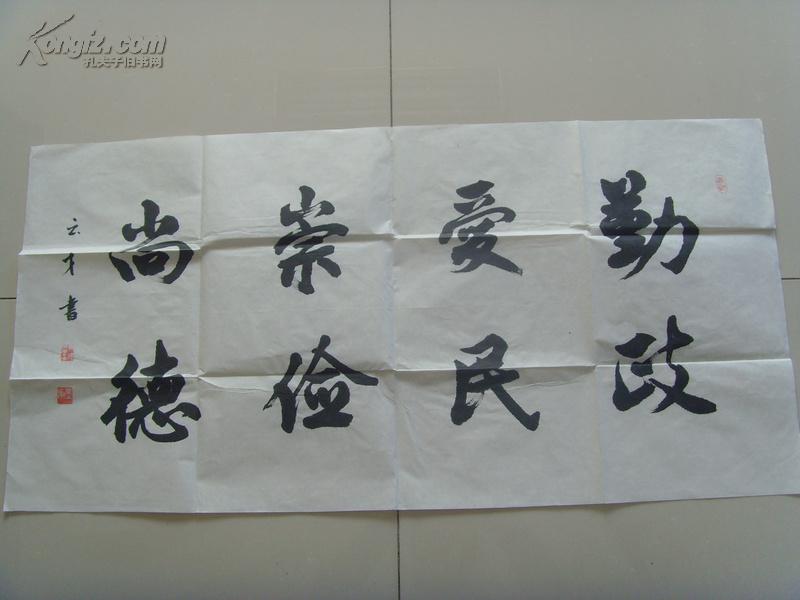 勤政
爱民
崇俭
尚德
云才书
Kongfz.com
孔夫子旧书网